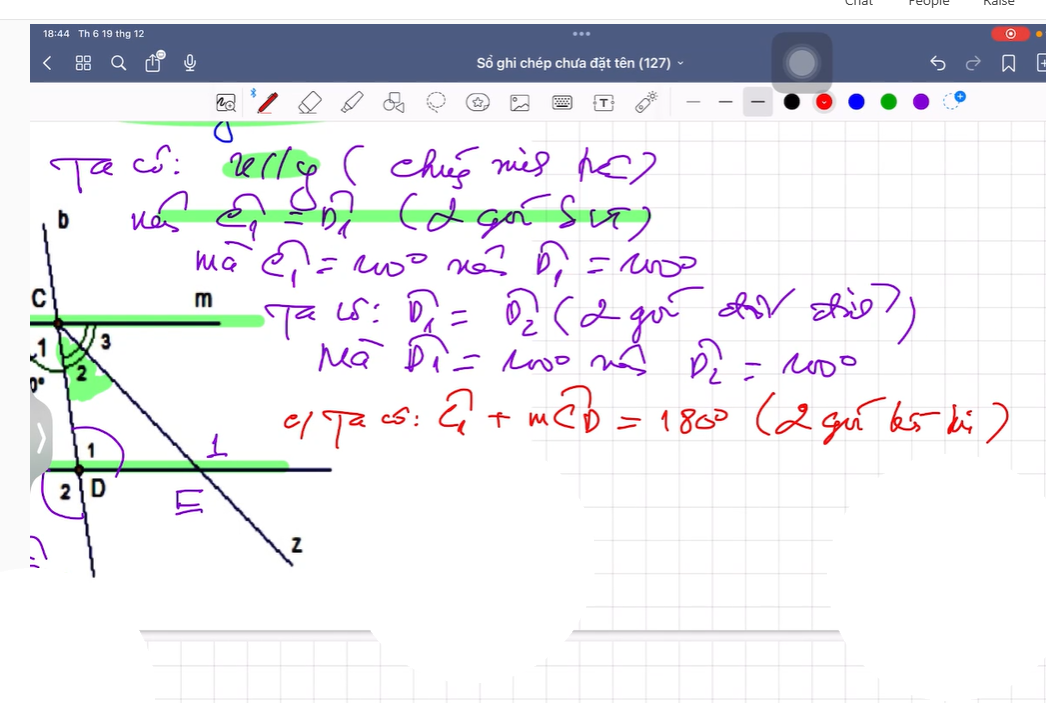 Chat People Raise
18:44 Th 6 19 thg 12
Sổ ghi chép chưa đặt tên (127)
Ta có: x // y (
nên Ĉ1 = D̂1 (2 góc SLT)
mà Ĉ1 = 100° nên D̂1 = 100°
Ta có: D̂1 = D̂2 (2 góc đối đỉnh)
Mà D̂1 = 100° nên D̂2 = 100°
c/ Ta có: Ĉ1 + mĈD = 180° (2 góc kề bù)
b
C
m
1
2
3
0°
1
1
2
D
E
z